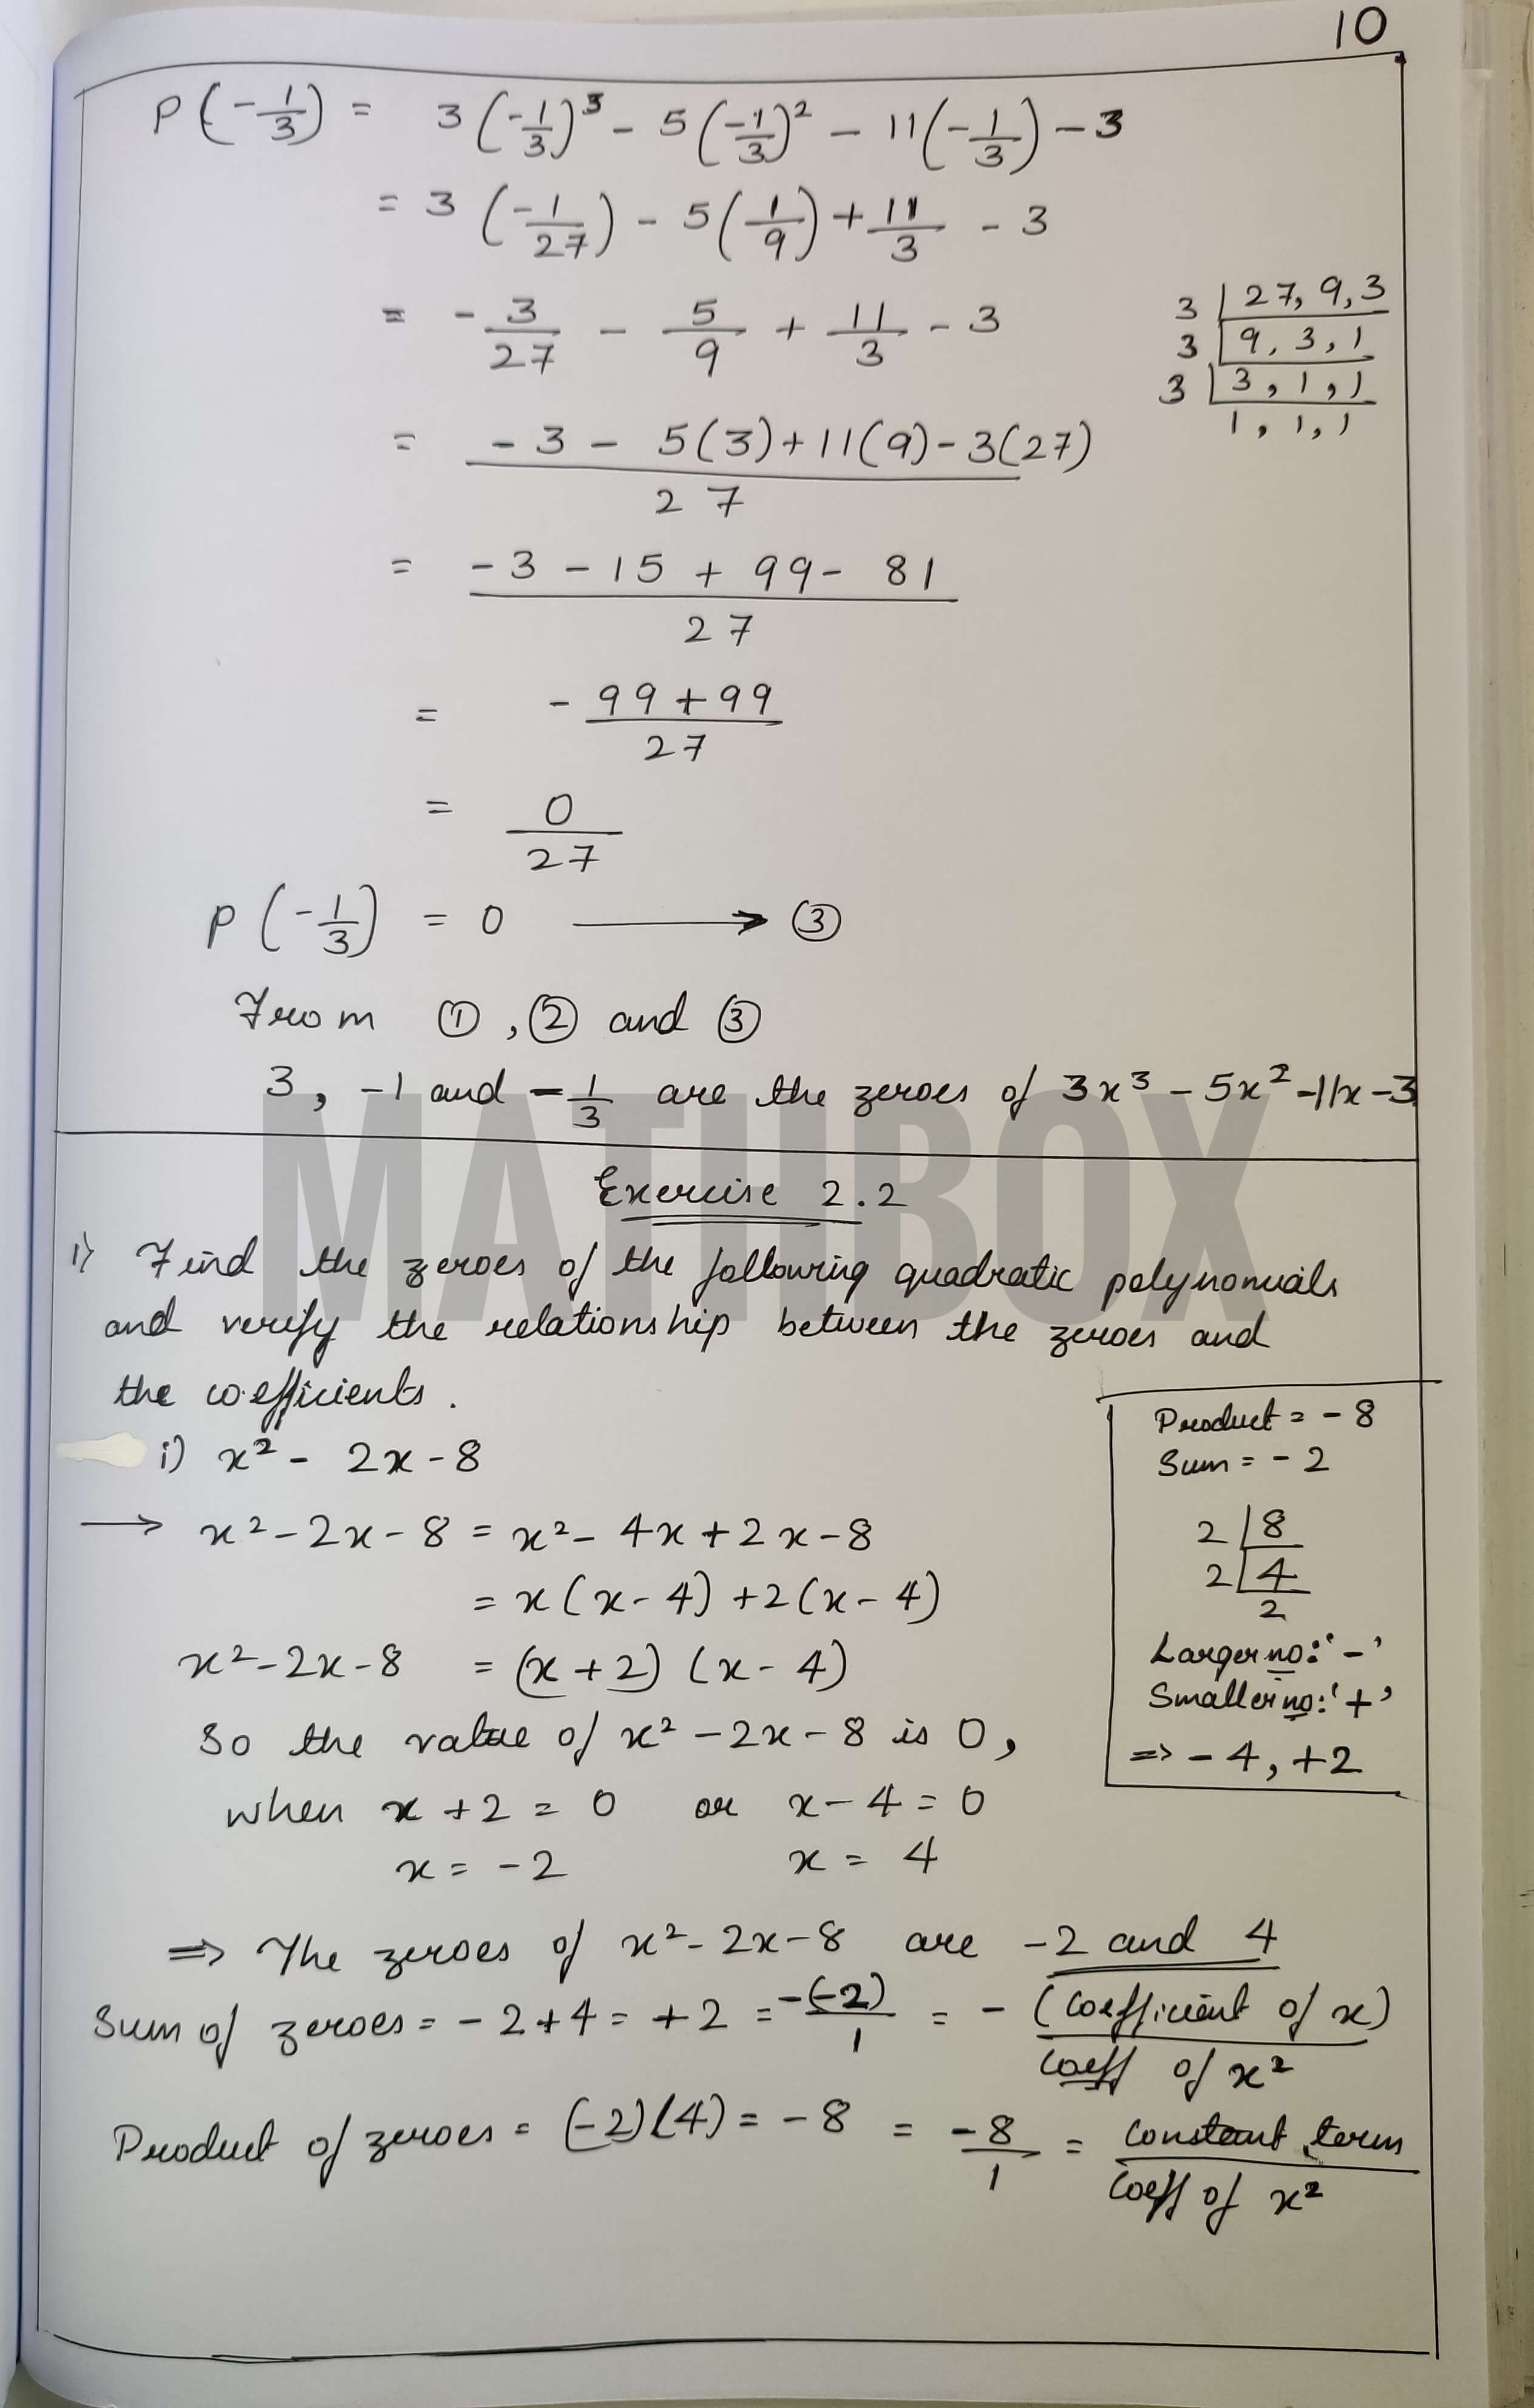 10
P(-1/3) = 3(-1/3)³ - 5(-1/3)² - 11(-1/3) - 3
= 3(-1/27) - 5(1/9) + 11/3 - 3
= -3/27 - 5/9 + 11/3 - 3
3 | 27, 9, 3
3 | 9, 3, 1
3 | 3, 1, 1
1, 1, 1
= (-3 - 5(3) + 11(9) - 3(27))/27
= (-3 - 15 + 99 - 81)/27
= (-99 + 99)/27
= 0/27
P(-1/3) = 0 ⟶ ③
From ①, ② and ③
3, -1 and -1/3 are the zeroes of 3x³ - 5x² - 11x - 3
MATHBOX
Exercise 2.2
1) Find the zeroes of the following quadratic polynomials
and verify the relationship between the zeroes and
the coefficients.
i) x² - 2x - 8
→ x² - 2x - 8 = x² - 4x + 2x - 8
= x(x - 4) + 2(x - 4)
x² - 2x - 8 = (x + 2) (x - 4)
So the value of x² - 2x - 8 is 0,
when x + 2 = 0 or x - 4 = 0
x = -2 x = 4
Product = -8
Sum = -2
2 | 8
2 | 4
2
Larger no: '-'
Smaller no: '+'
=> -4, +2
=> The zeroes of x² - 2x - 8 are -2 and 4
Sum of zeroes = -2 + 4 = +2 = -(-2)/1 = -(coefficient of x)/coeff of x²
Product of zeroes = (-2)(4) = -8 = -8/1 = constant term/coeff of x²